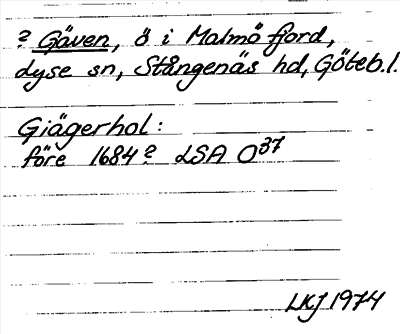 ? Gäven, ö i Malmö fjord,
Lyse sn, Stångenäs hd, Göteb.l.
Giägerhol:
före 1684? LSA O37
LKJ 1974